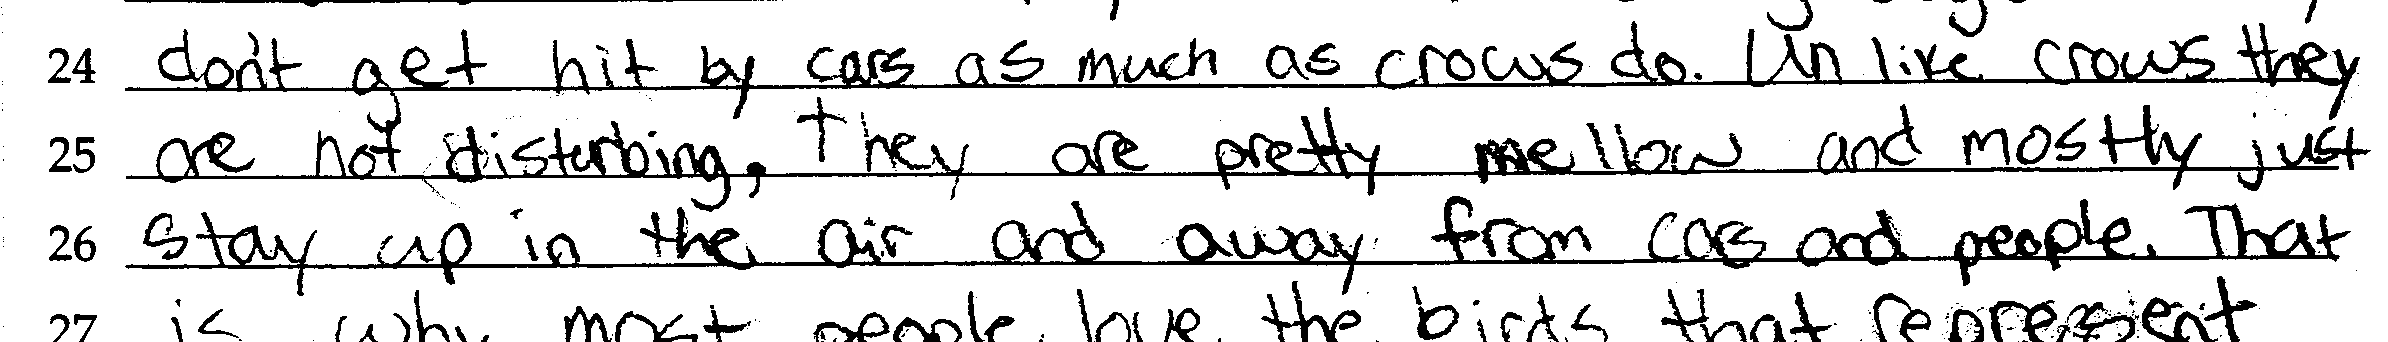 24 don't get hit by cars as much as crows do. Un like crows they
25 are not disturbing, They are pretty mellow and mostly just
26 stay up in the air and away from cars and people. That
27 is why most people love the birds that represent